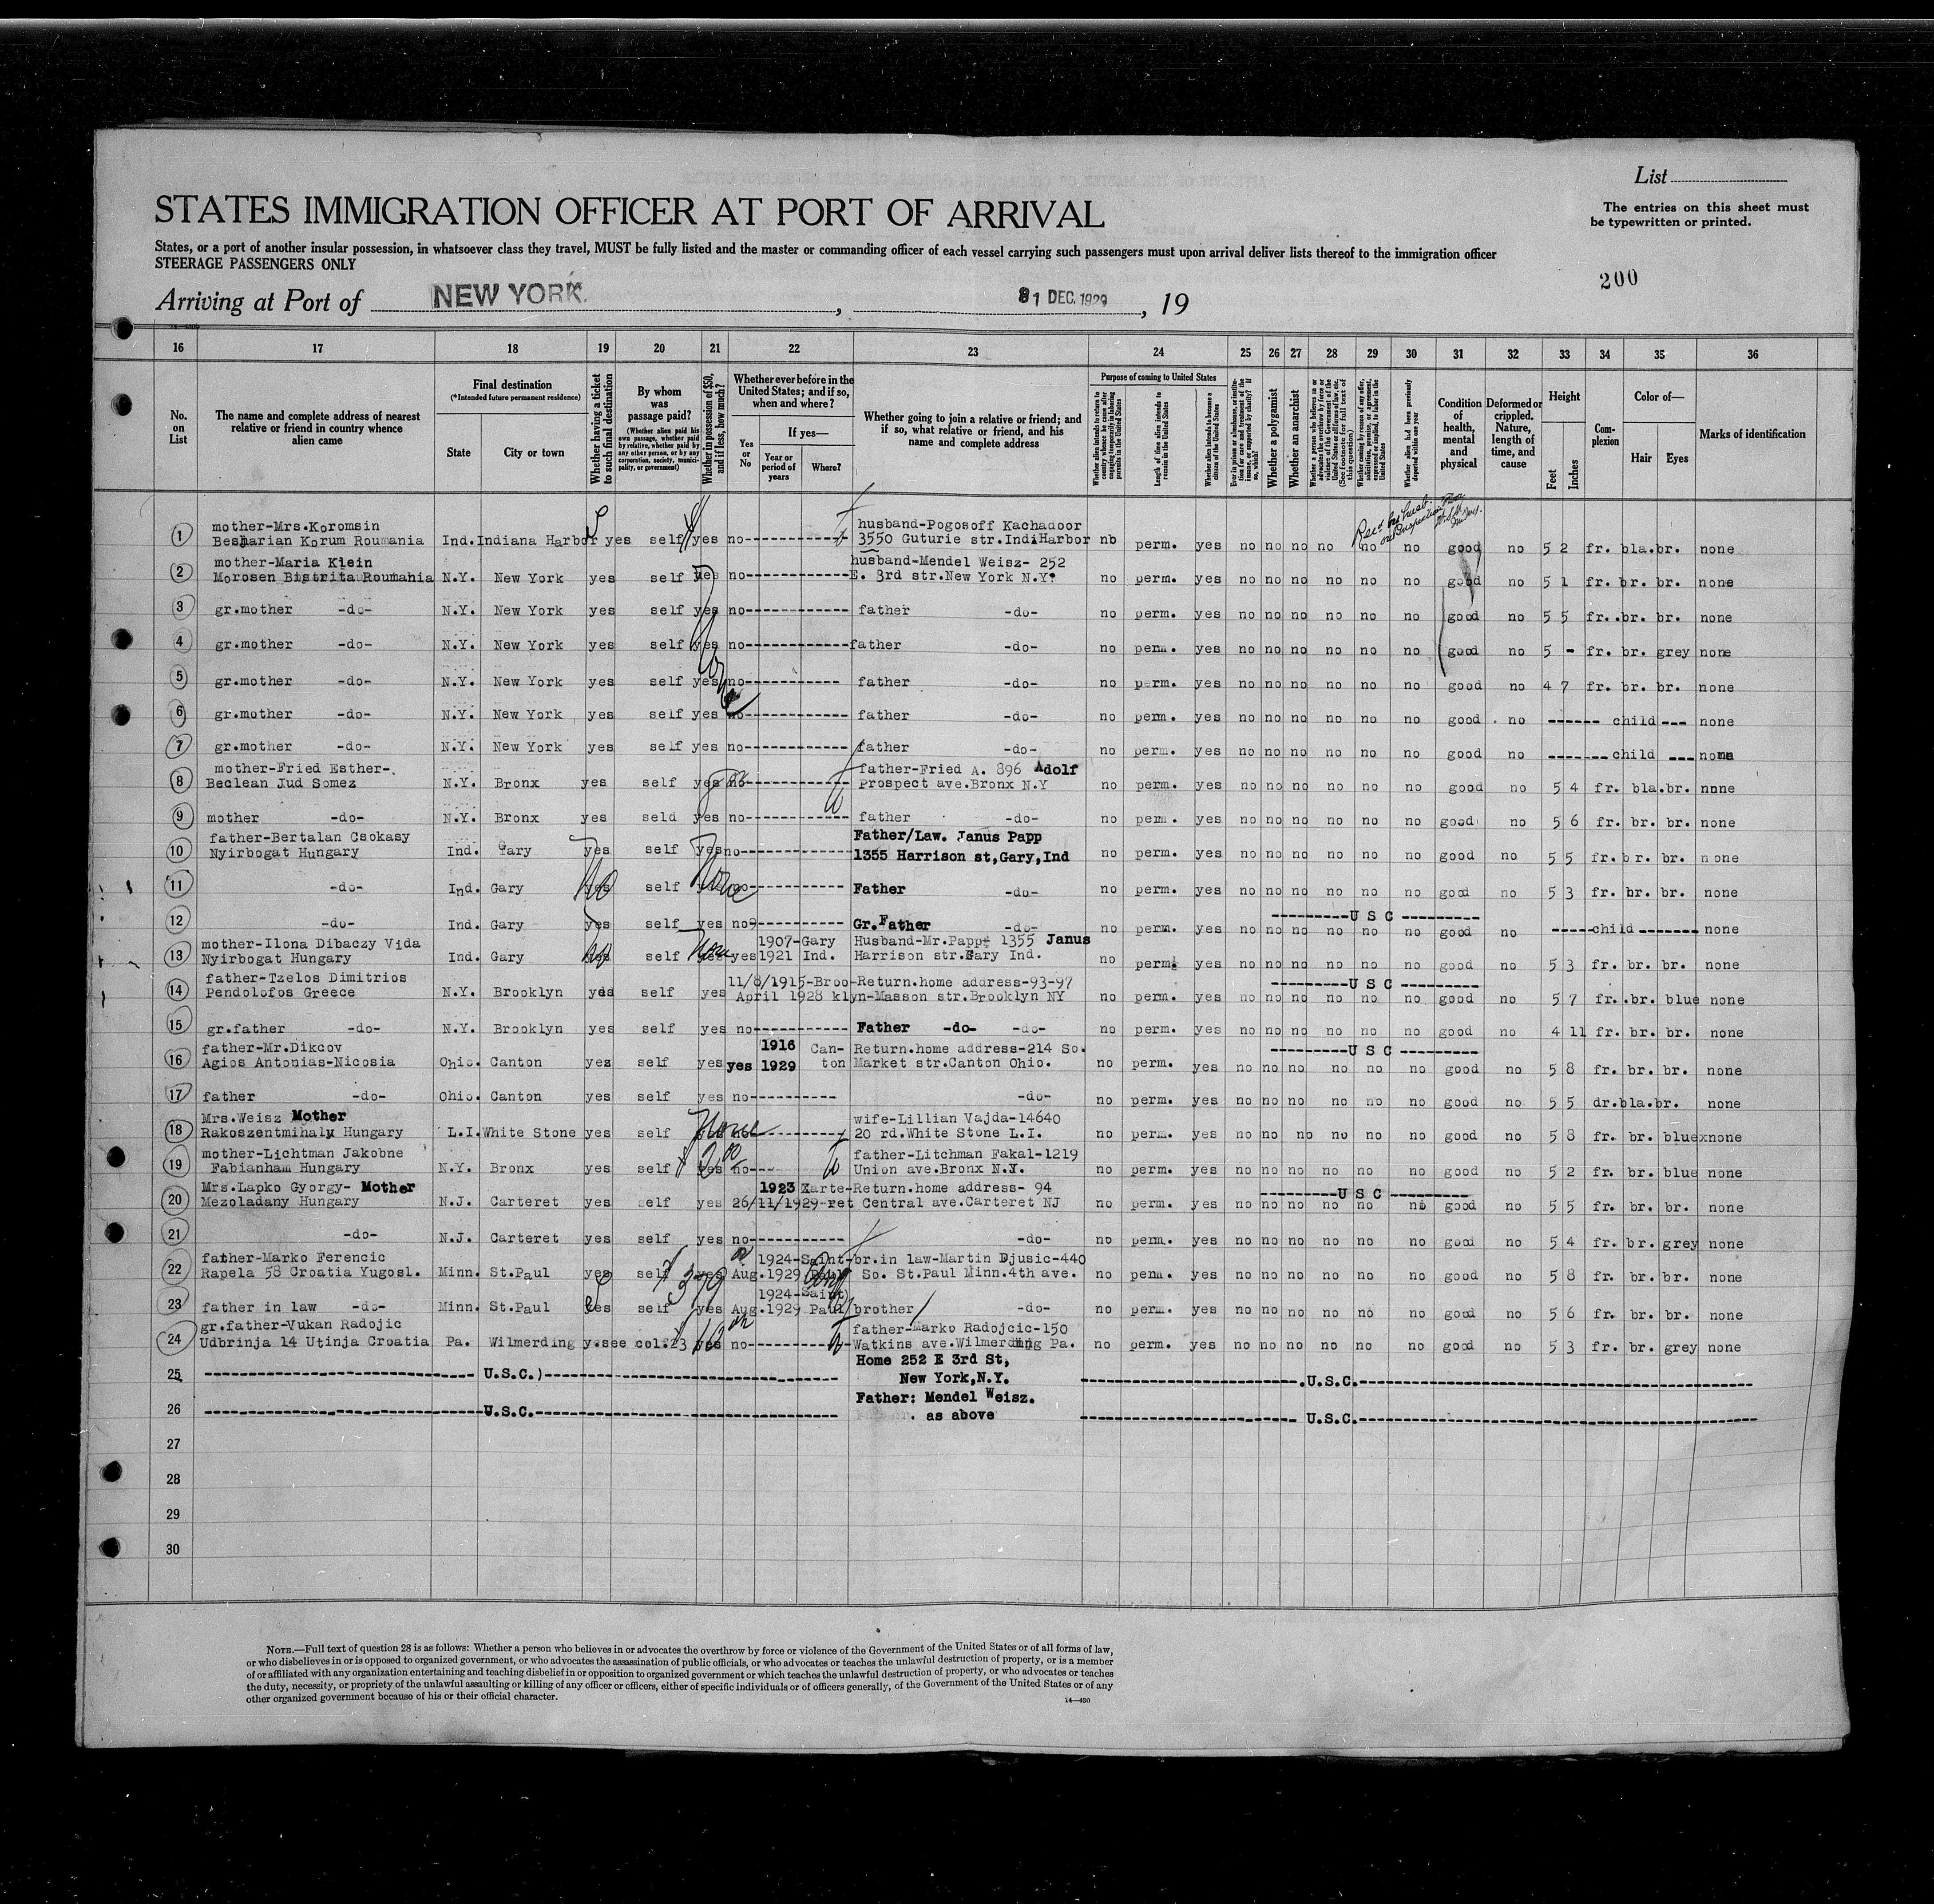 List
STATES IMMIGRATION OFFICER AT PORT OF ARRIVAL
The entries on this sheet must
be typewritten or printed.
States, or a port of another insular possession, in whatsoever class they travel, MUST be fully listed and the master or commanding officer of each vessel carrying such passengers must upon arrival deliver lists thereof to the immigration officer
STEERAGE PASSENGERS ONLY
200
Arriving at Port of NEW YORK. , 31 DEC. 1929 , 19
16 17 18 19 20 21 22 23 24 25 26 27 28 29 30 31 32 33 34 35 36
No. on List
The name and complete address of nearest relative or friend in country whence alien came
Final destination
(*Intended future permanent residence)
State
City or town
Whether having a ticket to such final destination
By whom was passage paid?
(Whether alien paid his own passage, whether paid by relative, whether paid by any other person, or by any corporation, society, municipality, or government)
Whether in possession of $50, and if less, how much?
Whether ever before in the United States; and if so, when and where?
Yes or No
If yes—
Year or period of years
Where?
Whether going to join a relative or friend; and if so, what relative or friend, and his name and complete address
Purpose of coming to United States
Whether alien intends to return to country whence he came after engaging temporarily in laboring pursuits in the United States
Length of time alien intends to remain in the United States
Whether alien intends to become a citizen of the United States
Whether a polygamist
Whether an anarchist
Whether alien had been previously deported within one year
Condition of health, mental and physical
Deformed or crippled. Nature, length of time, and cause
Height
Feet
Inches
Complexion
Color of—
Hair
Eyes
Marks of identification
mother-Mrs.Koromsin husband-Pogosoff Kachadoor
1 Besharian Korum Roumania Ind. Indiana Harbor yes self yes no 3550 Guturie str.IndiHarbor no perm. yes no no no no no no good no 5 2 fr. bla.br. none
mother-Maria Klein husband-Mendel Weisz- 252
2 Morosen Bistrita Roumania N.Y. New York yes self yes no E. 3rd str.New York N.Y. no perm. yes no no no no no no good no 5 1 fr. br. br. none
3 gr.mother -do- N.Y. New York yes self yes no father -do- no perm. yes no no no no no no good no 5 5 fr. br. br. none
4 gr.mother -do- N.Y. New York yes self yes no father -do- no perm. yes no no no no no no good no 5 - fr. br. grey none
5 gr.mother -do- N.Y. New York yes self yes no father -do- no perm. yes no no no no no no good no 4 7 fr. br. br. none
6 gr.mother -do- N.Y. New York yes self yes no father -do- no perm. yes no no no no no no good no child none
7 gr.mother -do- N.Y. New York yes self yes no father -do- no perm. yes no no no no no no good no child none
mother-Fried Esther-. father-Fried A. 896 Adolf
8 Beclean Jud Somez N.Y. Bronx yes self yes no prospect ave.Bronx N.Y no perm. yes no no no no no no good no 5 4 fr. bla.br. none
9 mother -do- N.Y. Bronx yes seld yes no father -do- no perm. yes no no no no no no good no 5 6 fr. br. br. none
father-Bertalan Csokasy Father/Law. Janus Papp
10 Nyirbogat Hungary Ind. Gary yes self yes no 1355 Harrison st,Gary,Ind no perm. yes no no no no no no good no 5 5 fr. br. br. none
11 -do- Ind. Gary No self None no Father -do- no perm. yes no no no no no no good no 5 3 fr. br. br. none
U S C
12 -do- Ind. Gary yes self yes no Gr.Father -do- no perm. yes no no no no no no good no child none
mother-Ilona Dibaczy Vida 1907-Gary Husband-Mr.Papp 1355 Janus
13 Nyirbogat Hungary Ind. Gary No self None yes 1921 Ind. Harrison str.Gary Ind. no perm. yes no no no no no no good no 5 3 fr. br. br. none
father-Tzelos Dimitrios 11/8/1915-Broo-Return.home address-93-97 U S C
14 Pendolofos Greece N.Y. Brooklyn yes self yes April 1928 klyn-Masson str.Brooklyn NY no perm. yes no no no no no no good no 5 7 fr. br. blue none
15 gr.father -do- N.Y. Brooklyn yes self yes no Father -do- -do- no perm. yes no no no no no no good no 4 11 fr. br. br. none
father-Mr.Dikcov 1916 Can- Return.home address-214 So. U S C
16 Agios Antonias-Nicosia Ohio. Canton yes self yes yes 1929 ton Market str.Canton Ohio. no perm. yes no no no no no no good no 5 8 fr. br. br. none
17 father -do- Ohio. Canton yes self yes no -do- no perm. yes no no no no no no good no 5 5 dr.bla.br. none
Mrs.Weisz Mother wife-Lillian Vajda-14640
18 Rakoszentmihaly Hungary L.I. White Stone yes self None no 20 rd.White Stone L.I. no perm. yes no no no no no no good no 5 8 fr. br. bluexnone
mother-Lichtman Jakobne father-Litchman Fakal-1219
19 Fabianham Hungary N.Y. Bronx yes self yes no Union ave.Bronx N.Y. no perm. yes no no no no no no good no 5 2 fr. br. blue none
Mrs.Lapko Gyorgy- Mother 1923 Karte-Return.home address- 94 U S C
20 Mezoladany Hungary N.J. Carteret yes self yes 26/11/1929-ret Central ave.Carteret NJ no perm. yes no no no no no no good no 5 5 fr. br. br. none
21 -do- N.J. Carteret yes self yes no -do- no perm. yes no no no no no no good no 5 4 fr. br. grey none
father-Marko Ferencic 1924-Saint-br.in law-Martin Djusic-440
22 Rapela 58 Croatia Yugosl. Minn. St.Paul yes self yes Aug.1929 So. St.Paul Minn.4th ave. no perm. yes no no no no no no good no 5 8 fr. br. br. none
1924-Saint
23 father in law -do- Minn. St.Paul yes self yes Aug.1929 Paul brother -do- no perm. yes no no no no no no good no 5 6 fr. br. br. none
gr.father-Vukan Radojic father-Marko Radojcic-150
24 Udbrinja 14 Utinja Croatia Pa. Wilmerding y.see col.23 yes no Watkins ave.Wilmerding Pa. no perm. yes no no no no no no good no 5 3 fr. br. grey none
Home 252 E 3rd St,
25 U.S.C.) New York,N.Y. U.S.C.
Father: Mendel Weisz.
26 U.S.C. as above U.S.C.
27
28
29
30
NOTE.—Full text of question 28 is as follows: Whether a person who believes in or advocates the overthrow by force or violence of the Government of the United States or of all forms of law,
or who disbelieves in or is opposed to organized government, or who advocates the assassination of public officials, or who advocates or teaches the unlawful destruction of property, or is a member
of or affiliated with any organization entertaining and teaching disbelief in or opposition to organized government or which teaches the unlawful destruction of property, or who advocates or teaches
the duty, necessity, or propriety of the unlawful assaulting or killing of any officer or officers, either of specific individuals or of officers generally, of the Government of the United States or of any
other organized government because of his or their official character.
14—430